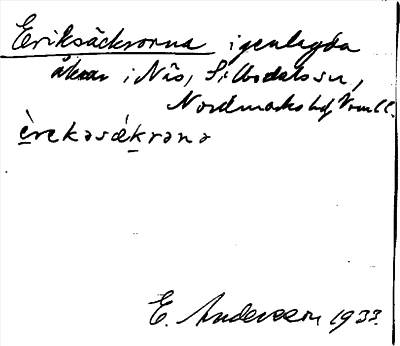 Eriksåckrorna igenlagda
åkrar i Nås, Silbodals sn,
Nordmarks hd, Vrml.
èrekəsǽkrənə
E. Andersson 1933.